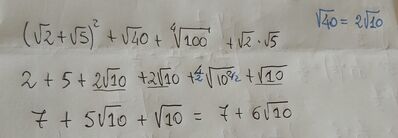 (√2 + √5)² + √40 + ⁴√100 + √2 · √5
√40 = 2√10
2 + 5 + 2√10 + 2√10 + ⁴⁄²√10²ᐟ² + √10
7 + 5√10 + √10 = 7 + 6√10